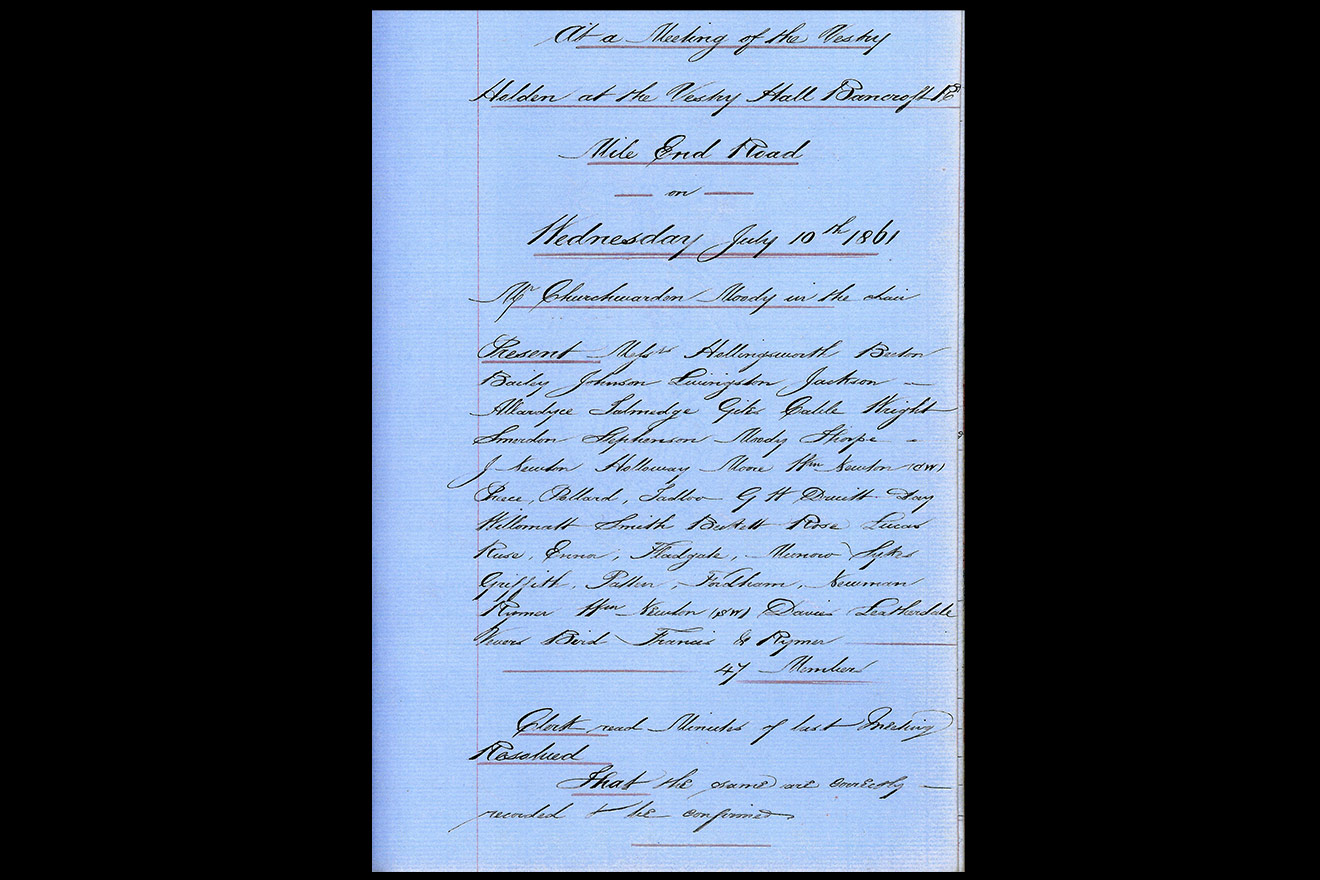 At a Meeting of the Vestry
Holden at the Vestry Hall Bancroft Rd
Mile End Road
on
Wednesday July 10th 1861
Mr Churchwarden Moody in the chair
Present Messrs Hollingsworth Beeton
Bailey Johnson Livingston Jackson
Allardyce Talmedge Giles Cable Wright
Smerdon Stephenson Moody Thorpe
J Newton Holloway Moore Wm Newton
Preece, Pollard, Tadloo G H Druitt Day
Willomatt Smith Beckett Rose Lucas
Ruse, Fladgate, Munow Sykes
Griffith, Patten, Fordham, Newman
Rymer Wm Newton Davies Leatherdale
Bird Francis & Rymer
47 Members
Clerk read Minutes of last Meeting
Resolved
That the same are correctly
recorded & be confirmed